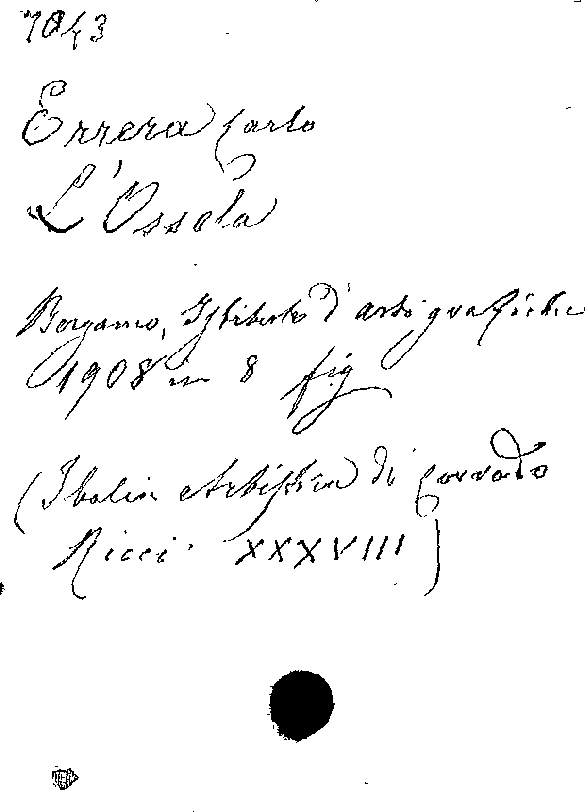 7043
Errera Carlo
L'Ossola
Bergamo, Istituto d'arti grafiche
1908 in 8 fig
(Italia Artistica di Corrado
Ricci. XXXVIII)